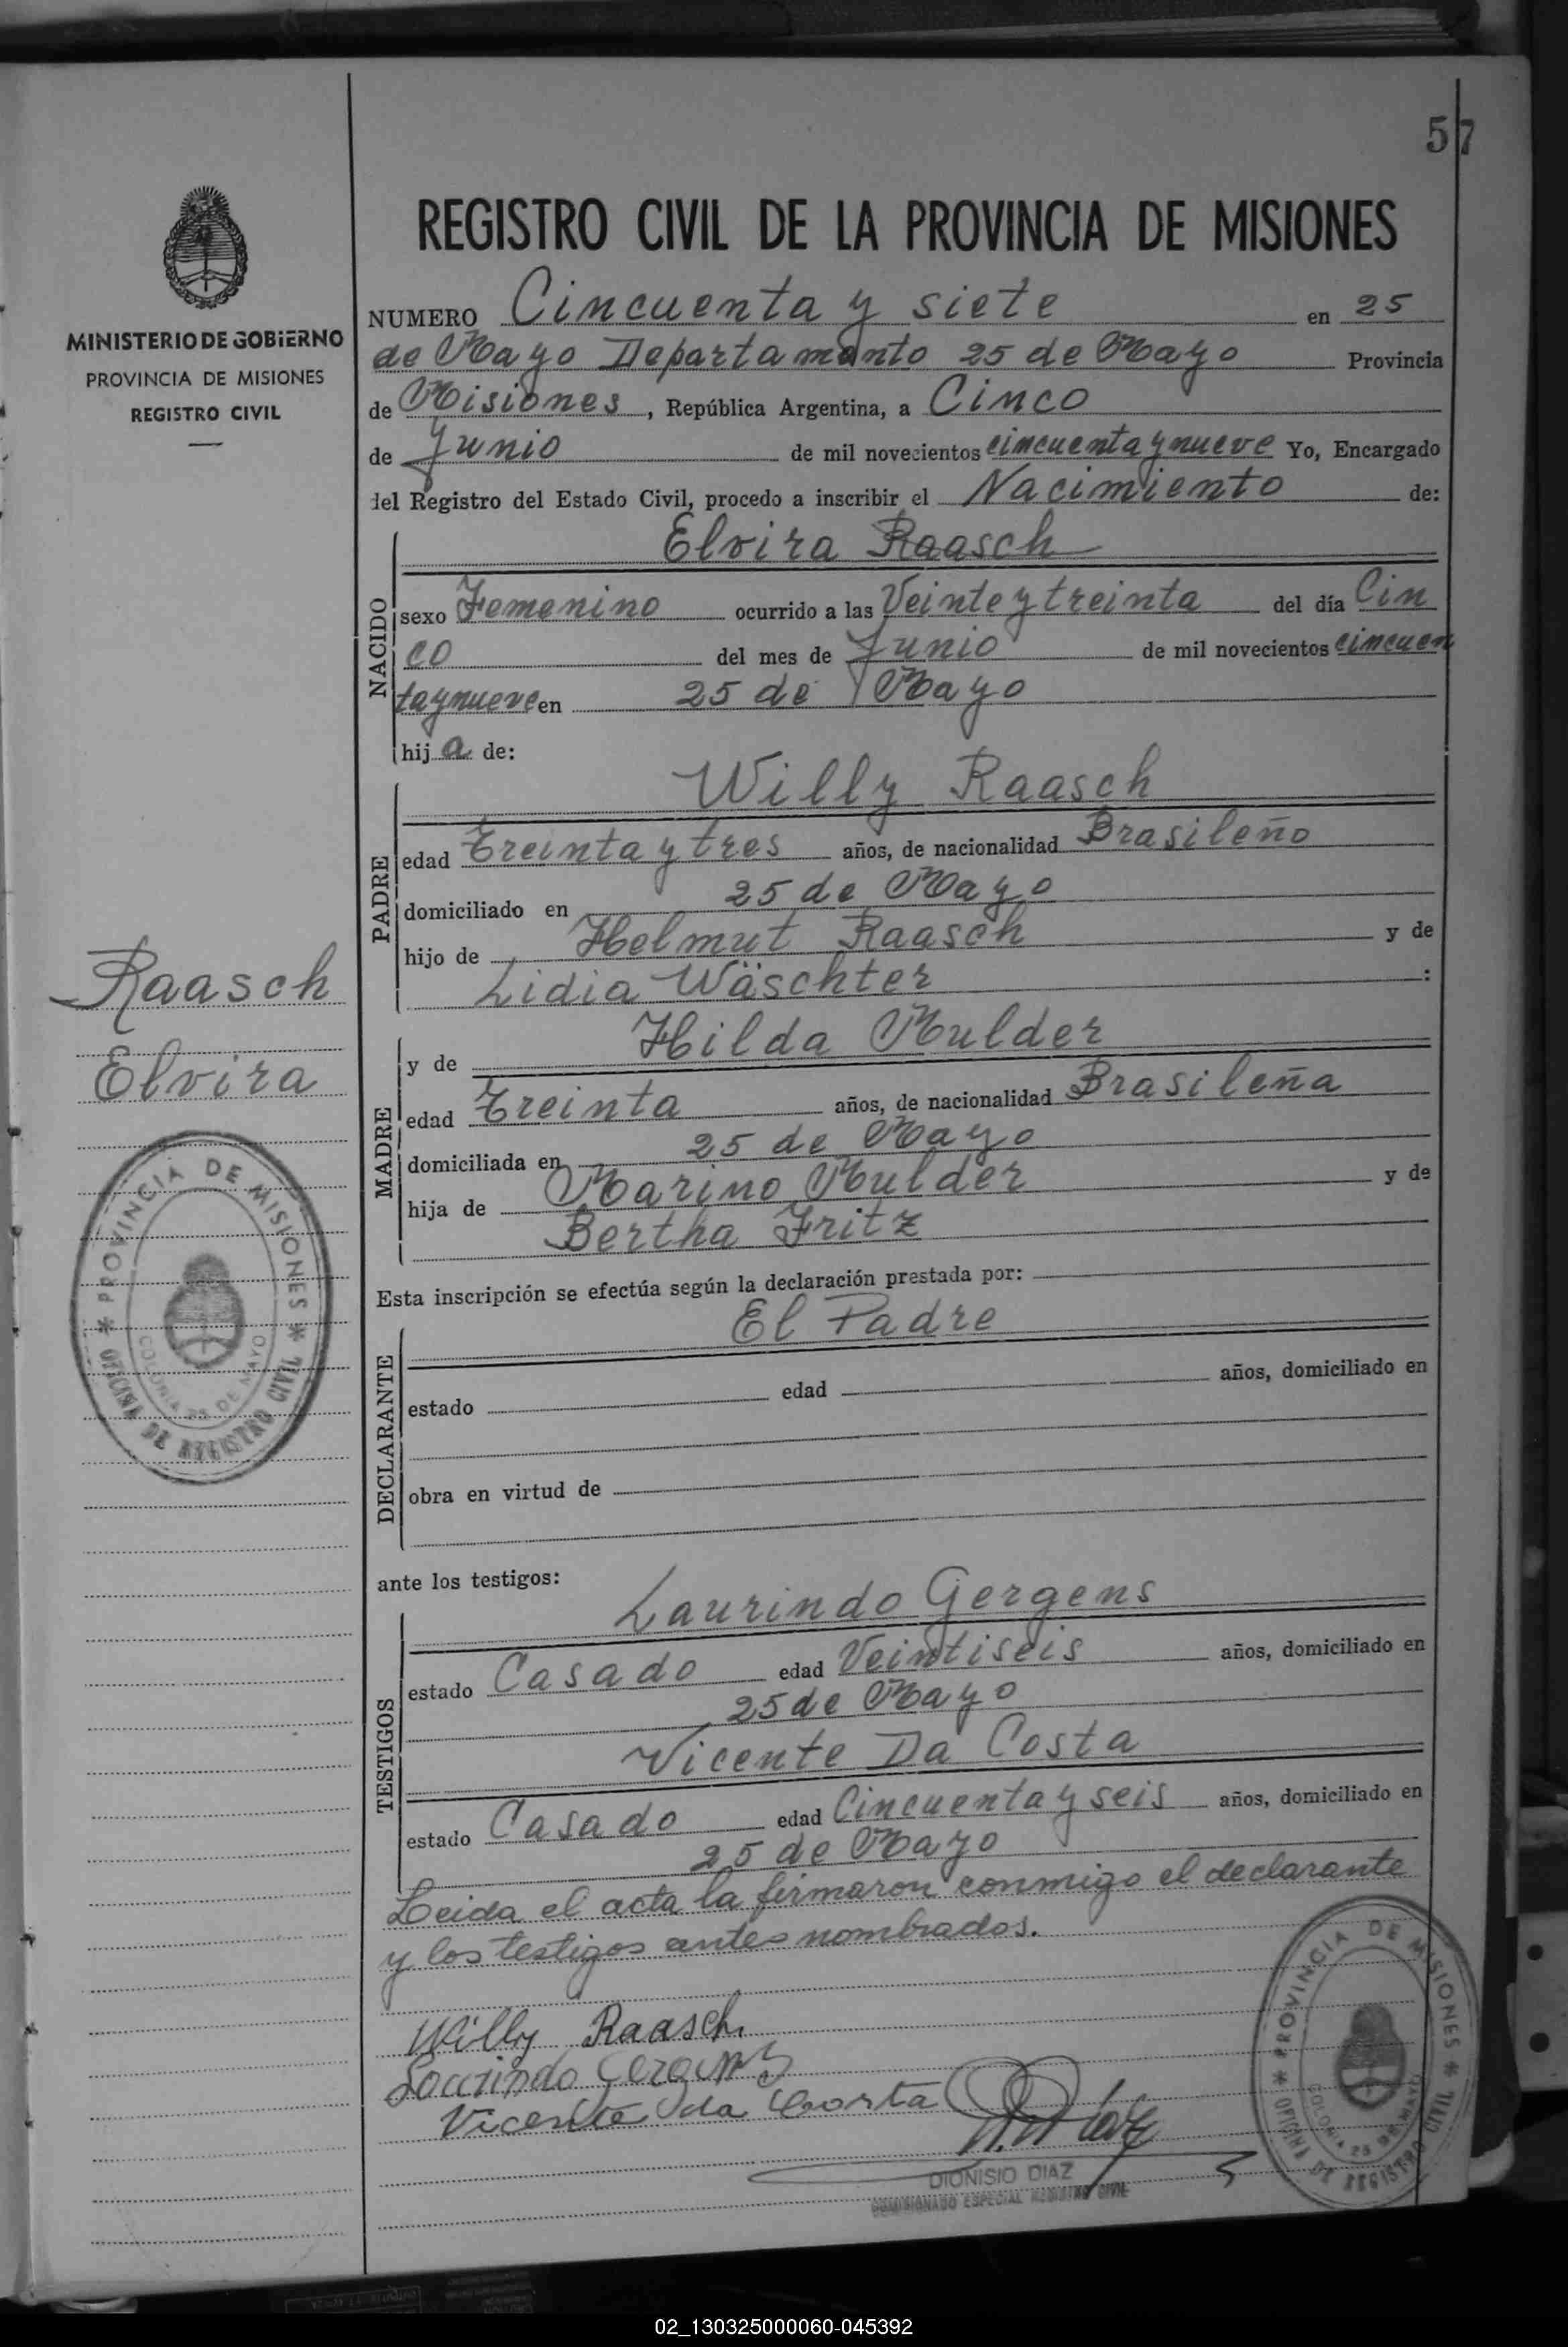 57
MINISTERIO DE GOBIERNO
PROVINCIA DE MISIONES
REGISTRO CIVIL
REGISTRO CIVIL DE LA PROVINCIA DE MISIONES
NUMERO Cincuenta y siete en 25
de Mayo Departamanto 25 de Mayo Provincia
de Misiones, República Argentina, a Cinco
de Junio de mil novecientos cincuenta y nueve Yo, Encargado
del Registro del Estado Civil, procedo a inscribir el Nacimiento de:
NACIDO
Elvira Raasch
sexo Femenino ocurrido a las Veinte y treinta del día Cin
co del mes de Junio de mil novecientos cincuen
ta y nueve en 25 de Mayo
hija de:
PADRE
Willy Raasch
edad Treinta y tres años, de nacionalidad Brasileño
domiciliado en 25 de Mayo
hijo de Helmut Raasch y de
Lidia Wäschter :
MADRE
y de Hilda Mulder
edad Treinta años, de nacionalidad Brasileña
domiciliada en 25 de Mayo
hija de Marino Mulder y de
Bertha Fritz
Raasch
Elvira
PROVINCIA DE MISIONES
COLONIA 25 DE MAYO
OFICINA DE REGISTRO CIVIL
Esta inscripción se efectúa según la declaración prestada por:
DECLARANTE
El Padre
estado edad años, domiciliado en
obra en virtud de
ante los testigos:
TESTIGOS
Laurindo Gergens
estado Casado edad Veintiseis años, domiciliado en
25 de Mayo
Vicente Da Costa
estado Casado edad Cincuenta y seis años, domiciliado en
25 de Mayo
Leida el acta la firmaron conmigo el declarante
y los testigos antes nombrados.
Willy Raasch
Laurindo Gergens
Vicente da Costa
DIONISIO DIAZ
COMISIONADO ESPECIAL REGISTRO CIVIL
PROVINCIA DE MISIONES
COLONIA 25 DE MAYO
OFICINA DE REGISTRO CIVIL
02_130325000060-045392